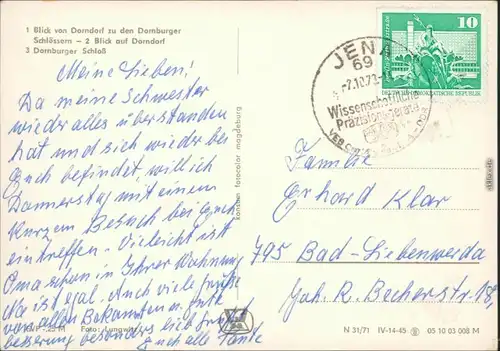 1 Blick von Dorndorf zu den Dornburger
Schlössern – 2 Blick auf Dorndorf
3 Dornburger Schloß
Meine Lieben!
Da meine Schwester
wieder alles überstanden
hat und sich wieder bei
Euch befindet, will ich
Donnerstag mit einem
kurzem Besuch bei Euch
eintreffen. Vieleicht ist
Oma schon in Ihrer Wohnung
Na ist egal. Auch viele Grüße
von allen Bekannten u. gute
besserung besonders
Euch alle Tante
EVP -,25 M Foto: Lungwitz
konsum fotocolor magdeburg
JENA
69
-7.10.73
Wissenschaftliche
Präzisionsgeräte
VEB
10
DEUTSCHE DEMOKRATISCHE REPUBLIK
Familie
Erhard Klar
795 Bad-Liebenwerda
Joh. R. Becherstr. 18,
N 31/71 IV-14-45 05 10 03 008 M